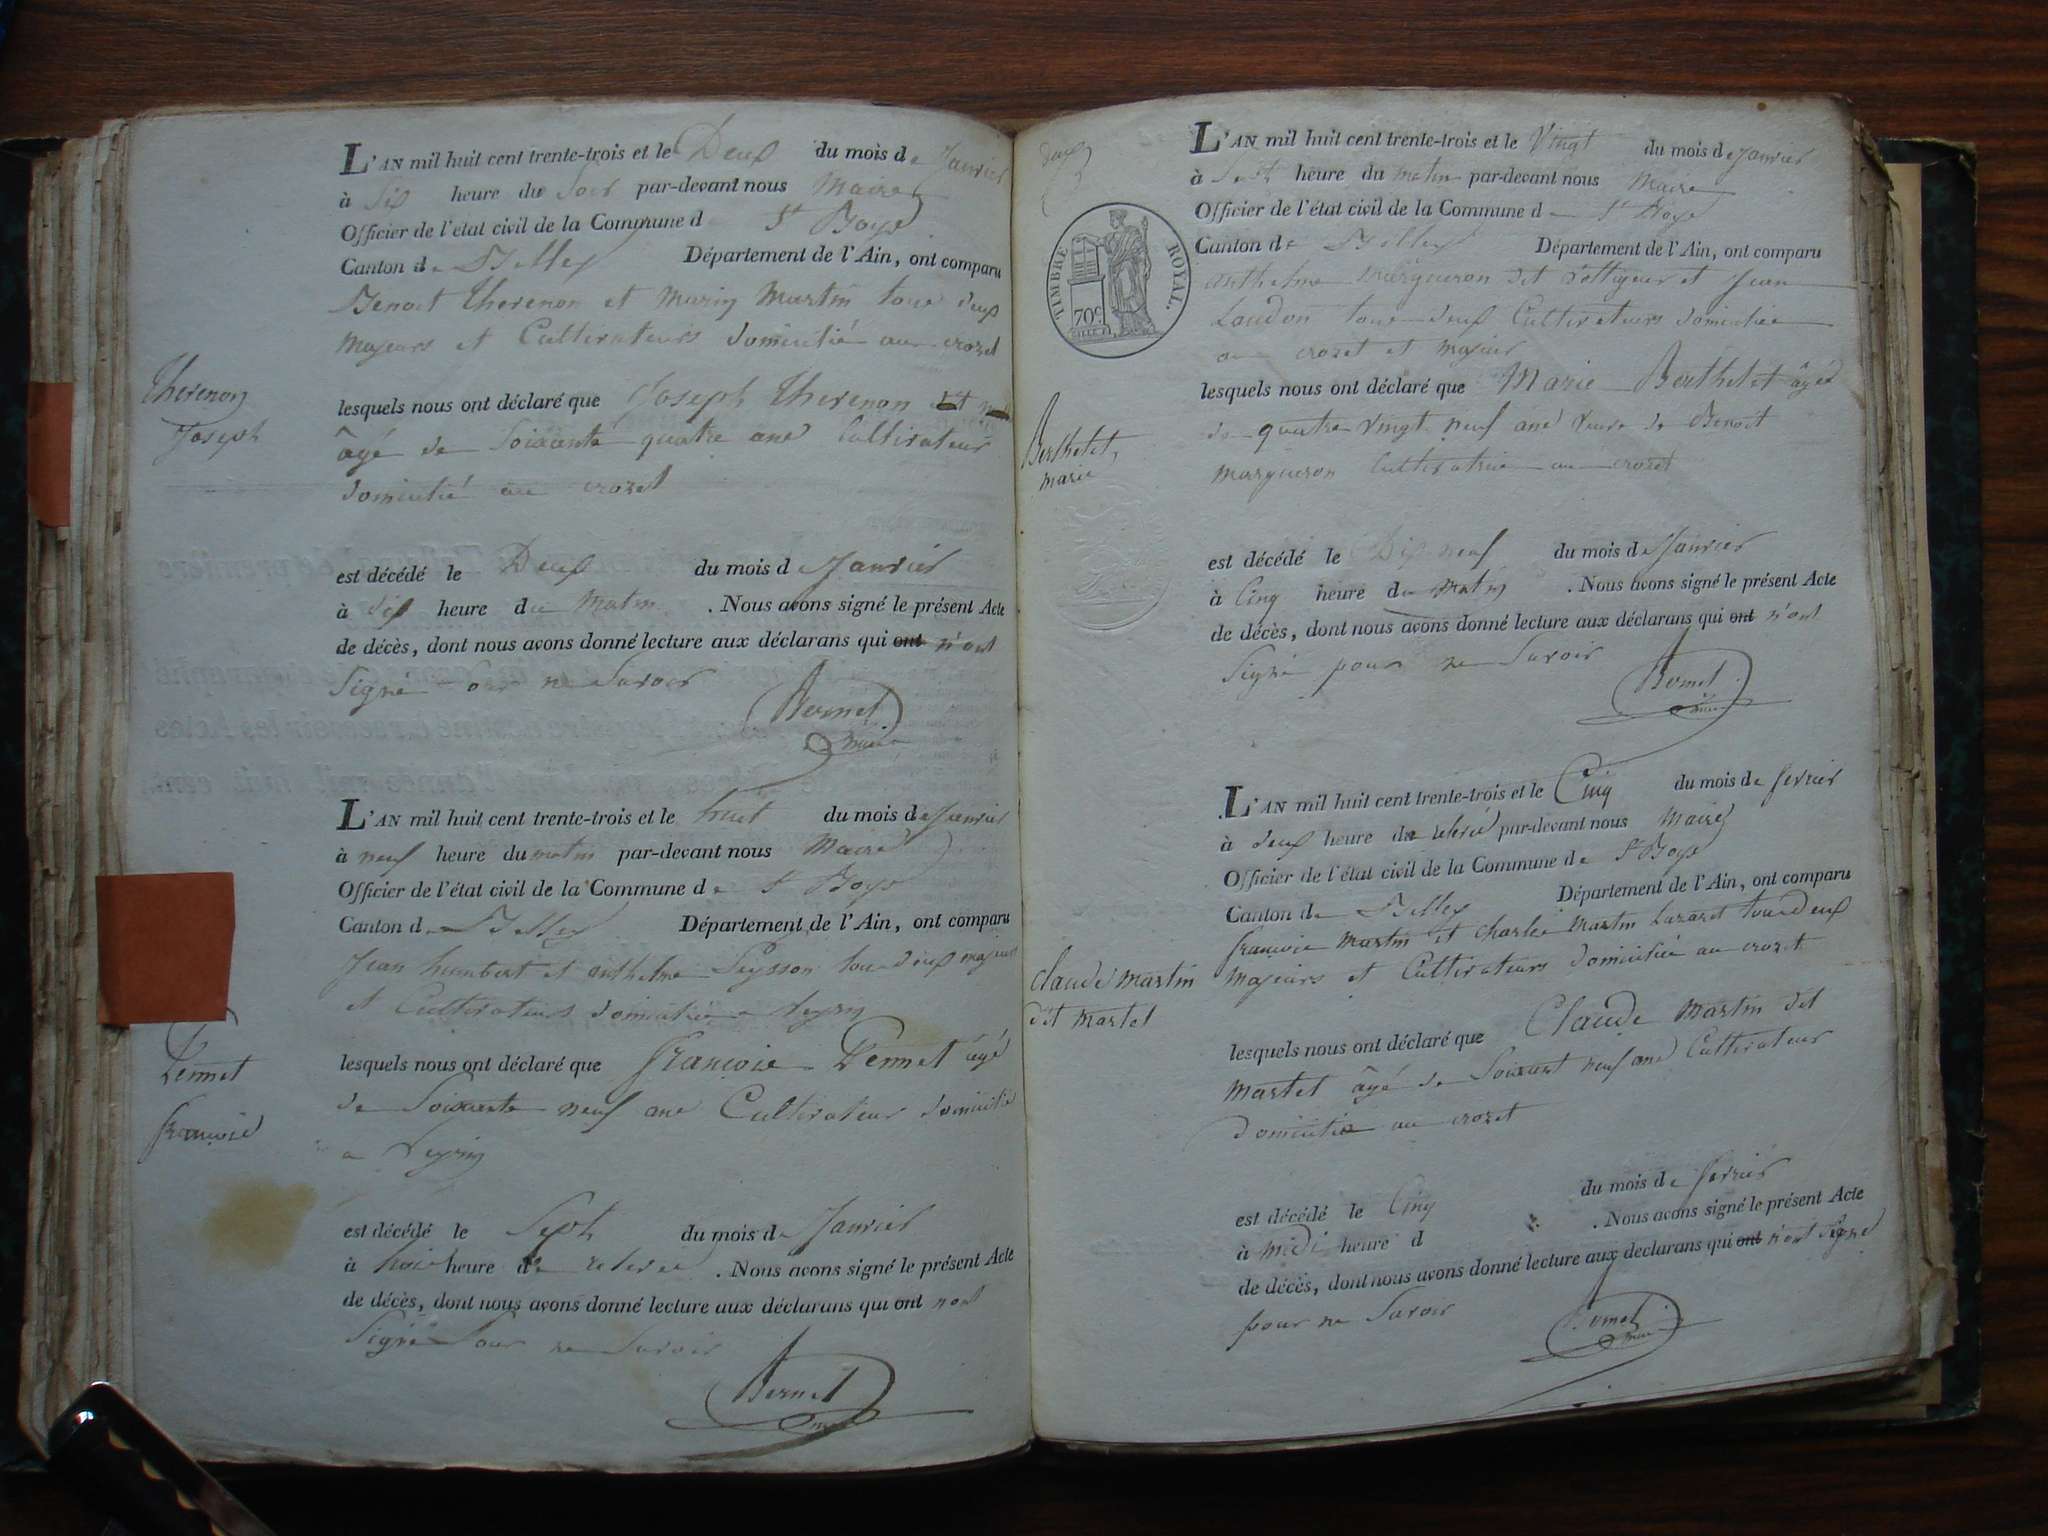 L'AN mil huit cent trente-trois et le Deux du mois de Janvier
à Six heure du Soir par-devant nous Maire
Officier de l'état civil de la Commune d St Boys
Canton de Belley Département de l'Ain, ont comparu
Benoit therenon et marin martin tous deux
majeurs et Cultivateurs domicilié au crozet
therenon
Joseph
lesquels nous ont déclaré que Joseph therenon
âgé de Soixante quatre ans Cultivateur
domicilié au crozet
est décédé le Deux du mois de Janvier
à Six heure du Matin . Nous avons signé le présent Acte
de décès, dont nous avons donné lecture aux déclarans qui ont n'ont
Signé pour ne Savoir
Bernet
maire
L'AN mil huit cent trente-trois et le huit du mois de Janvier
à neuf heure du matin par-devant nous Maire
Officier de l'état civil de la Commune de St Boys
Canton de Belley Département de l'Ain, ont comparu
Jean humbert et anthelme Peysson tous deux majeurs
et Cultivateurs domicilié a Peyrin
françois
lesquels nous ont déclaré que françois âgé
de Soixante neuf ans Cultivateur domicilié
a Peyrin
est décédé le Sept du mois de Janvier
à trois heure de relevée . Nous avons signé le présent Acte
de décès, dont nous avons donné lecture aux déclarans qui ont n'ont
Signé pour ne Savoir
Bernet
maire
TIMBRE ROYAL.
70c
L'AN mil huit cent trente-trois et le Vingt du mois de Janvier
à Sept heure du matin par-devant nous Maire
Officier de l'état civil de la Commune de St Boys
Canton de Belley Département de l'Ain, ont comparu
anthelme Margueron dit et Jean
Loudon tous deux Cultivateurs domicilié
au crozet et majeur
Berthelet
marie
lesquels nous ont déclaré que Marie Berthelet âgée
de quatre vingt neuf ans veuve de Benoit
margueron Cultivatrice au crozet
est décédé le Dix neuf du mois de Janvier
à Cinq heure du Matin . Nous avons signé le présent Acte
de décès, dont nous avons donné lecture aux déclarans qui ont n'ont
Signé pour ne Savoir
Bernet
maire
L'AN mil huit cent trente-trois et le Cinq du mois de fevrier
à deux heure de relevé par-devant nous Maire
Officier de l'état civil de la Commune de St Boys
Canton de Belley Département de l'Ain, ont comparu
françois martin et charles martin Lazaret tous deux
majeurs et Cultivateurs domiciliée au crozet
claude martin
dit martet
lesquels nous ont déclaré que Claude martin dit
martet âgé de Soixant neuf ans Cultivateur
domicilié au crozet
est décédé le Cinq du mois de fevrier
à midi heure d . Nous avons signé le présent Acte
de décès, dont nous avons donné lecture aux declarans qui ont n'ont Signé
pour ne Savoir
Bernet
maire